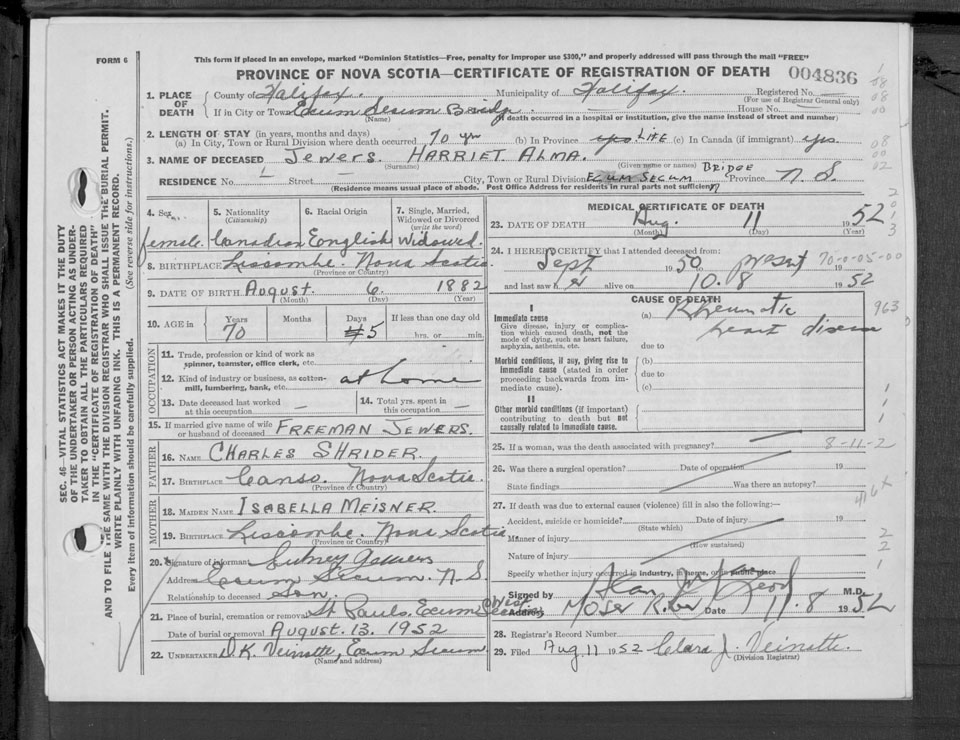 FORM 6
This form if placed in an envelope, marked "Dominion Statistics—Free, penalty for improper use $300," and properly addressed will pass through the mail "FREE"
PROVINCE OF NOVA SCOTIA—CERTIFICATE OF REGISTRATION OF DEATH 004836
1. PLACE OF DEATH
County of Halifax. Municipality of Halifax. Registered No. —
(For use of Registrar General only)
If in City or Town Ecum Secum Bridge House No. —
(Name) (If death occurred in a hospital or institution, give the name instead of street and number)
2. LENGTH OF STAY (in years, months and days)
(a) In City, Town or Rural Division where death occurred 70 yrs (b) In Province yes LIFE (c) In Canada (if immigrant) yes.
3. NAME OF DECEASED Jewers. HARRIET ALMA.
(Surname) (Given name or names)
RESIDENCE No. Street — City, Town or Rural Division ECUM SECUM BRIDGE Province N. S.
(Residence means usual place of abode. Post Office Address for residents in rural parts not sufficient)
4. Sex female.
5. Nationality (Citizenship) Canadian
6. Racial Origin English
7. Single, Married, Widowed or Divorced (write the word) Widowed.
8. BIRTHPLACE Liscombe. Nova Scotia.
(Province or Country)
9. DATE OF BIRTH August. 6. 1882
(Month) (Day) (Year)
10. AGE in Years 70 Months Days 5 If less than one day old
hrs. or min.
OCCUPATION
11. Trade, profession or kind of work as spinner, teamster, office clerk, etc.
12. Kind of industry or business, as cotton-mill, lumbering, bank, etc. at home
13. Date deceased last worked at this occupation —
14. Total yrs. spent in this occupation —
15. If married give name of wife or husband of deceased FREEMAN JEWERS.
FATHER
16. NAME CHARLES SHRIDER.
17. BIRTHPLACE Canso. Nova Scotia.
(Province or Country)
MOTHER
18. MAIDEN NAME ISABELLA MEISNER.
19. BIRTHPLACE Liscombe. Nova Scotia
(Province or Country)
20. Signature of informant Sidney Jewers
Address Ecum Secum. N. S.
Relationship to deceased son.
21. Place of burial, cremation or removal St Pauls, Ecum Secum
Date of burial or removal August. 13. 1952
22. UNDERTAKER D. K. Veinotte, Ecum Secum
(Name and address)
MEDICAL CERTIFICATE OF DEATH
23. DATE OF DEATH Aug. 11 1952
(Month) (Day) (Year)
24. I HEREBY CERTIFY that I attended deceased from:
Sept 1950 present
and last saw her alive on 10.8 1952
70-0-05-00
963
CAUSE OF DEATH
I
Immediate cause
Give disease, injury or complication which caused death, not the mode of dying, such as heart failure, asphyxia, asthenia, etc.
(a) Rheumatic
heart disease
due to
Morbid conditions, if any, giving rise to immediate cause (stated in order proceeding backwards from immediate cause).
(b)
due to
(c)
II
Other morbid conditions (if important) contributing to death but not causally related to immediate cause.
25. If a woman, was the death associated with pregnancy? — 8-11-2
26. Was there a surgical operation? Date of operation 19
State findings Was there an autopsy?
416x
27. If death was due to external causes (violence) fill in also the following:—
Accident, suicide or homicide? Date of injury 19
(State which)
Manner of injury
(How sustained)
Nature of injury
Specify whether injury occurred in industry, in home, or in public place
Signed by M.D.
Address Moser River Date 11.8 1952
28. Registrar's Record Number
29. Filed Aug 11 1952 Clara J. Veinotte.
(Division Registrar)
SEC. 46—VITAL STATISTICS ACT MAKES IT THE DUTY
OF THE UNDERTAKER OR PERSON ACTING AS UNDER-
TAKER TO OBTAIN ALL THE PARTICULARS REQUIRED
IN THE "CERTIFICATE OF REGISTRATION OF DEATH"
AND TO FILE THE SAME WITH THE DIVISION REGISTRAR WHO SHALL ISSUE THE BURIAL PERMIT.
WRITE PLAINLY WITH UNFADING INK. THIS IS A PERMANENT RECORD.
Every item of information should be carefully supplied. (See reverse side for instructions.)